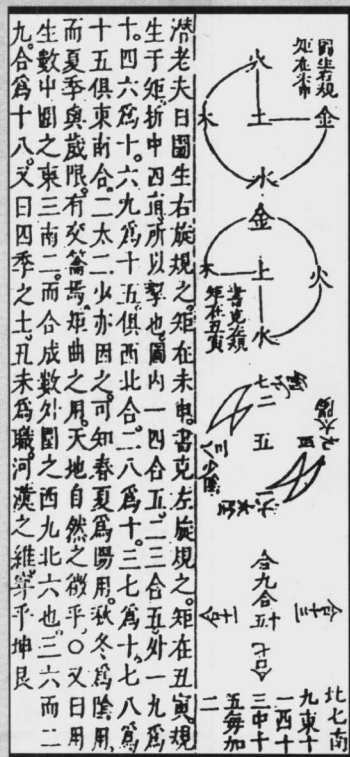 圖生右規
矩在未申
火
土
金
木
水
金
火
土
木
水
書克左規
矩在丑寅
七二
五
九四太陽
三八少陰
合九合
十五
合七
北七南
九東十
一西四十
三中十
五每加
二
潜老夫曰圖生右旋規之。矩在未申。書克左旋規之。矩在丑寅。規
生于矩。折中四直。所以挈也。圖内一四合五。二三合五。外一九爲
十。四六爲十。六九爲十五。俱西北合。二八爲十。三七爲十。七八爲
十五俱東南合。二太二少亦因之。可知春夏爲陽用。秋冬爲陰用。
而夏季與歲限。有交籥焉。矩曲之用。天地自然之徵乎。○又曰用
生數中圍之東三南二。而合成數外圍之西九北六也。三六而二
九。合爲十八。又曰四季之土。丑未爲職。河漢之維。寧乎坤艮